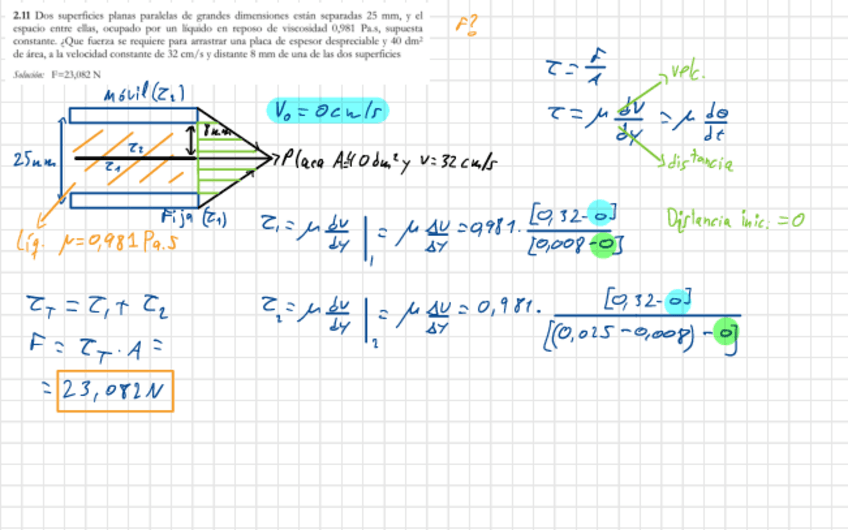 2.11 Dos superficies planas paralelas de grandes dimensiones están separadas 25 mm, y el
espacio entre ellas, ocupado por un líquido en reposo de viscosidad 0,981 Pa.s, supuesta
constante. ¿Que fuerza se requiere para arrastrar una placa de espesor despreciable y 40 dm²
de área, a la velocidad constante de 32 cm/s y distante 8 mm de una de las dos superficies
Solución: F=23,082 N
F?
τ = F/A
velc.
τ = μ dV/dy = μ dθ/dt
distancia
Móvil (τ₂)
V₀ = 0 cm/s
25mm
τ₂
τ₁
Placa A=40dm² y v=32cm/s
Fija (τ₁)
Líq. μ=0,981 Pa.s
τ₁ = μ dv/dy |₁ = μ Δv/Δy = 0,981. [0,32-0]/[0,008-0]
Distancia inic. = 0
τ_T = τ₁ + τ₂
τ₂ = μ dv/dy |₂ = μ Δv/Δy = 0,981. [0,32-0]/[(0,025-0,008)-0]
F = τ_T . A =
= 23,082N